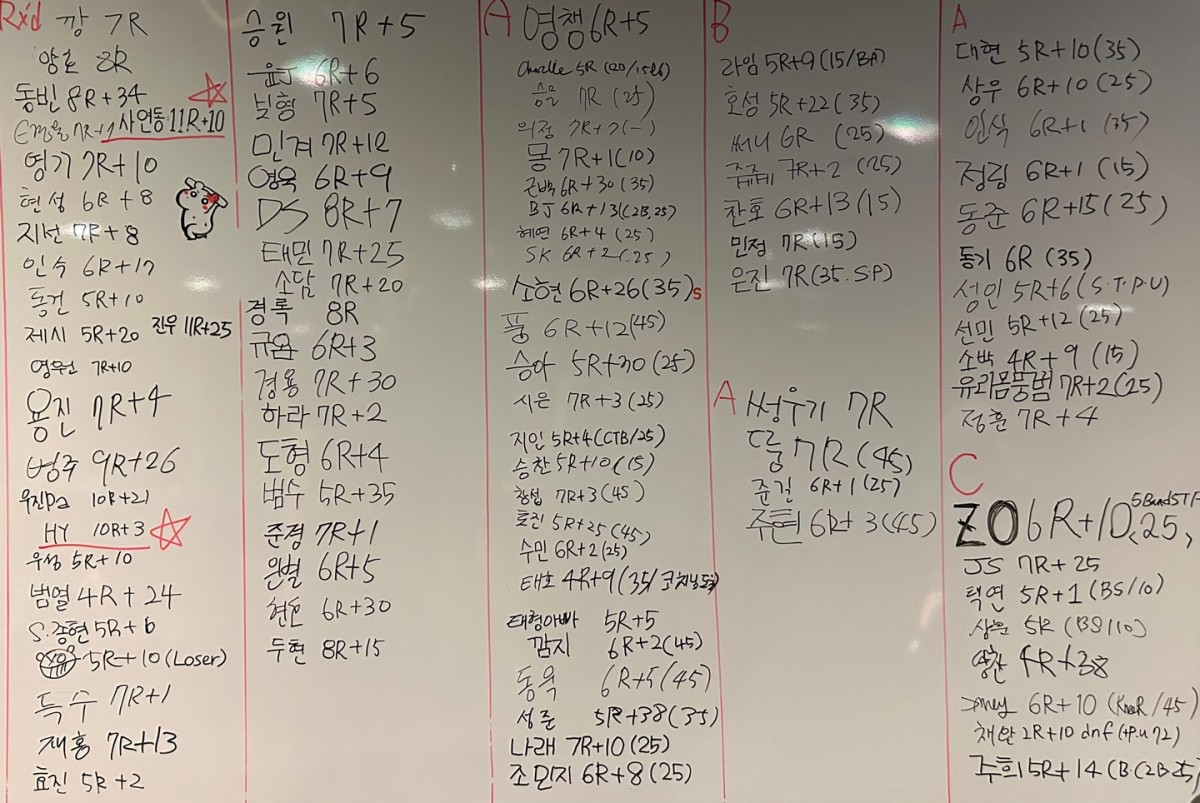 Rx'd
깡 7R
양호 8R
동빈 8R+34
7R+7
사연동 11R+10
영기 7R+10
현성 6R+8
지선 7R+8
인수 6R+17
동건 5R+10
제시 5R+20
진우 11R+25
영우선 7R+10
용진 7R+4
병주 9R+26
우진pa 10R+21
HY 10R+3
우성 5R+10
범열 4R+24
S.종현 5R+6
5R+10 (Loser)
득수 7R+1
재홍 7R+13
효진 5R+2
승원 7R+5
윤J 6R+6
빛형 7R+5
민겨 7R+12
영욱 6R+9
DS 8R+7
태민 7R+25
소담 7R+20
경록 8R
규욤 6R+3
경용 7R+30
하라 7R+2
도형 6R+4
범수 5R+35
준정 7R+1
은별 6R+5
6R+30
두현 8R+15
A
영챙 6R+5
Charlie 5R (20/15lb)
승모 7R (25)
의정 7R+7(-)
몽 7R+1(10)
근백 6R+30(35)
BJ 6R+13(C2B,25)
혜연 6R+4 (25)
SK 6R+2(25)
소현 6R+26(35)s
풍 6R+12(45)
승아 5R+30(25)
시은 7R+3(25)
지인 5R+4(CTB/25)
승찬 5R+10(15)
창섭 7R+3(45)
효진 5R+25(45)
수민 6R+2(25)
태호 4R+9(35/
태형아빠 5R+5
깜지 6R+2(45)
동욱 6R+5(45)
성준 5R+38(35)
나래 7R+10(25)
조민지 6R+8(25)
B
라임 5R+9(15/BA)
호성 5R+22(35)
써니 6R (25)
쥬쥬 7R+2 (25)
찬호 6R+13(15)
민정 7R(15)
은진 7R(35.SP)
A
썽우기 7R
둥 7R(45)
준건 6R+1(25)
주현 6R+3(45)
A
대현 5R+10(35)
상우 6R+10(25)
인식 6R+1(35)
정림 6R+1(15)
동준 6R+15(25)
동기 6R(35)
성인 5R+6(S.T.P.U)
선민 5R+12(25)
소박 4R+9(15)
유라몸뚱범 7R+2(25)
정훈 7R+4
C
ZO 6R+10(25,
JS 7R+25
택연 5R+1(BS/10)
상문 5R(BS/10)
영찬 4R+38
6R+10(KneeR/45)
채완 2R+10 dnf(+P.U 72)
주희 5R+14(B.C2B 25)